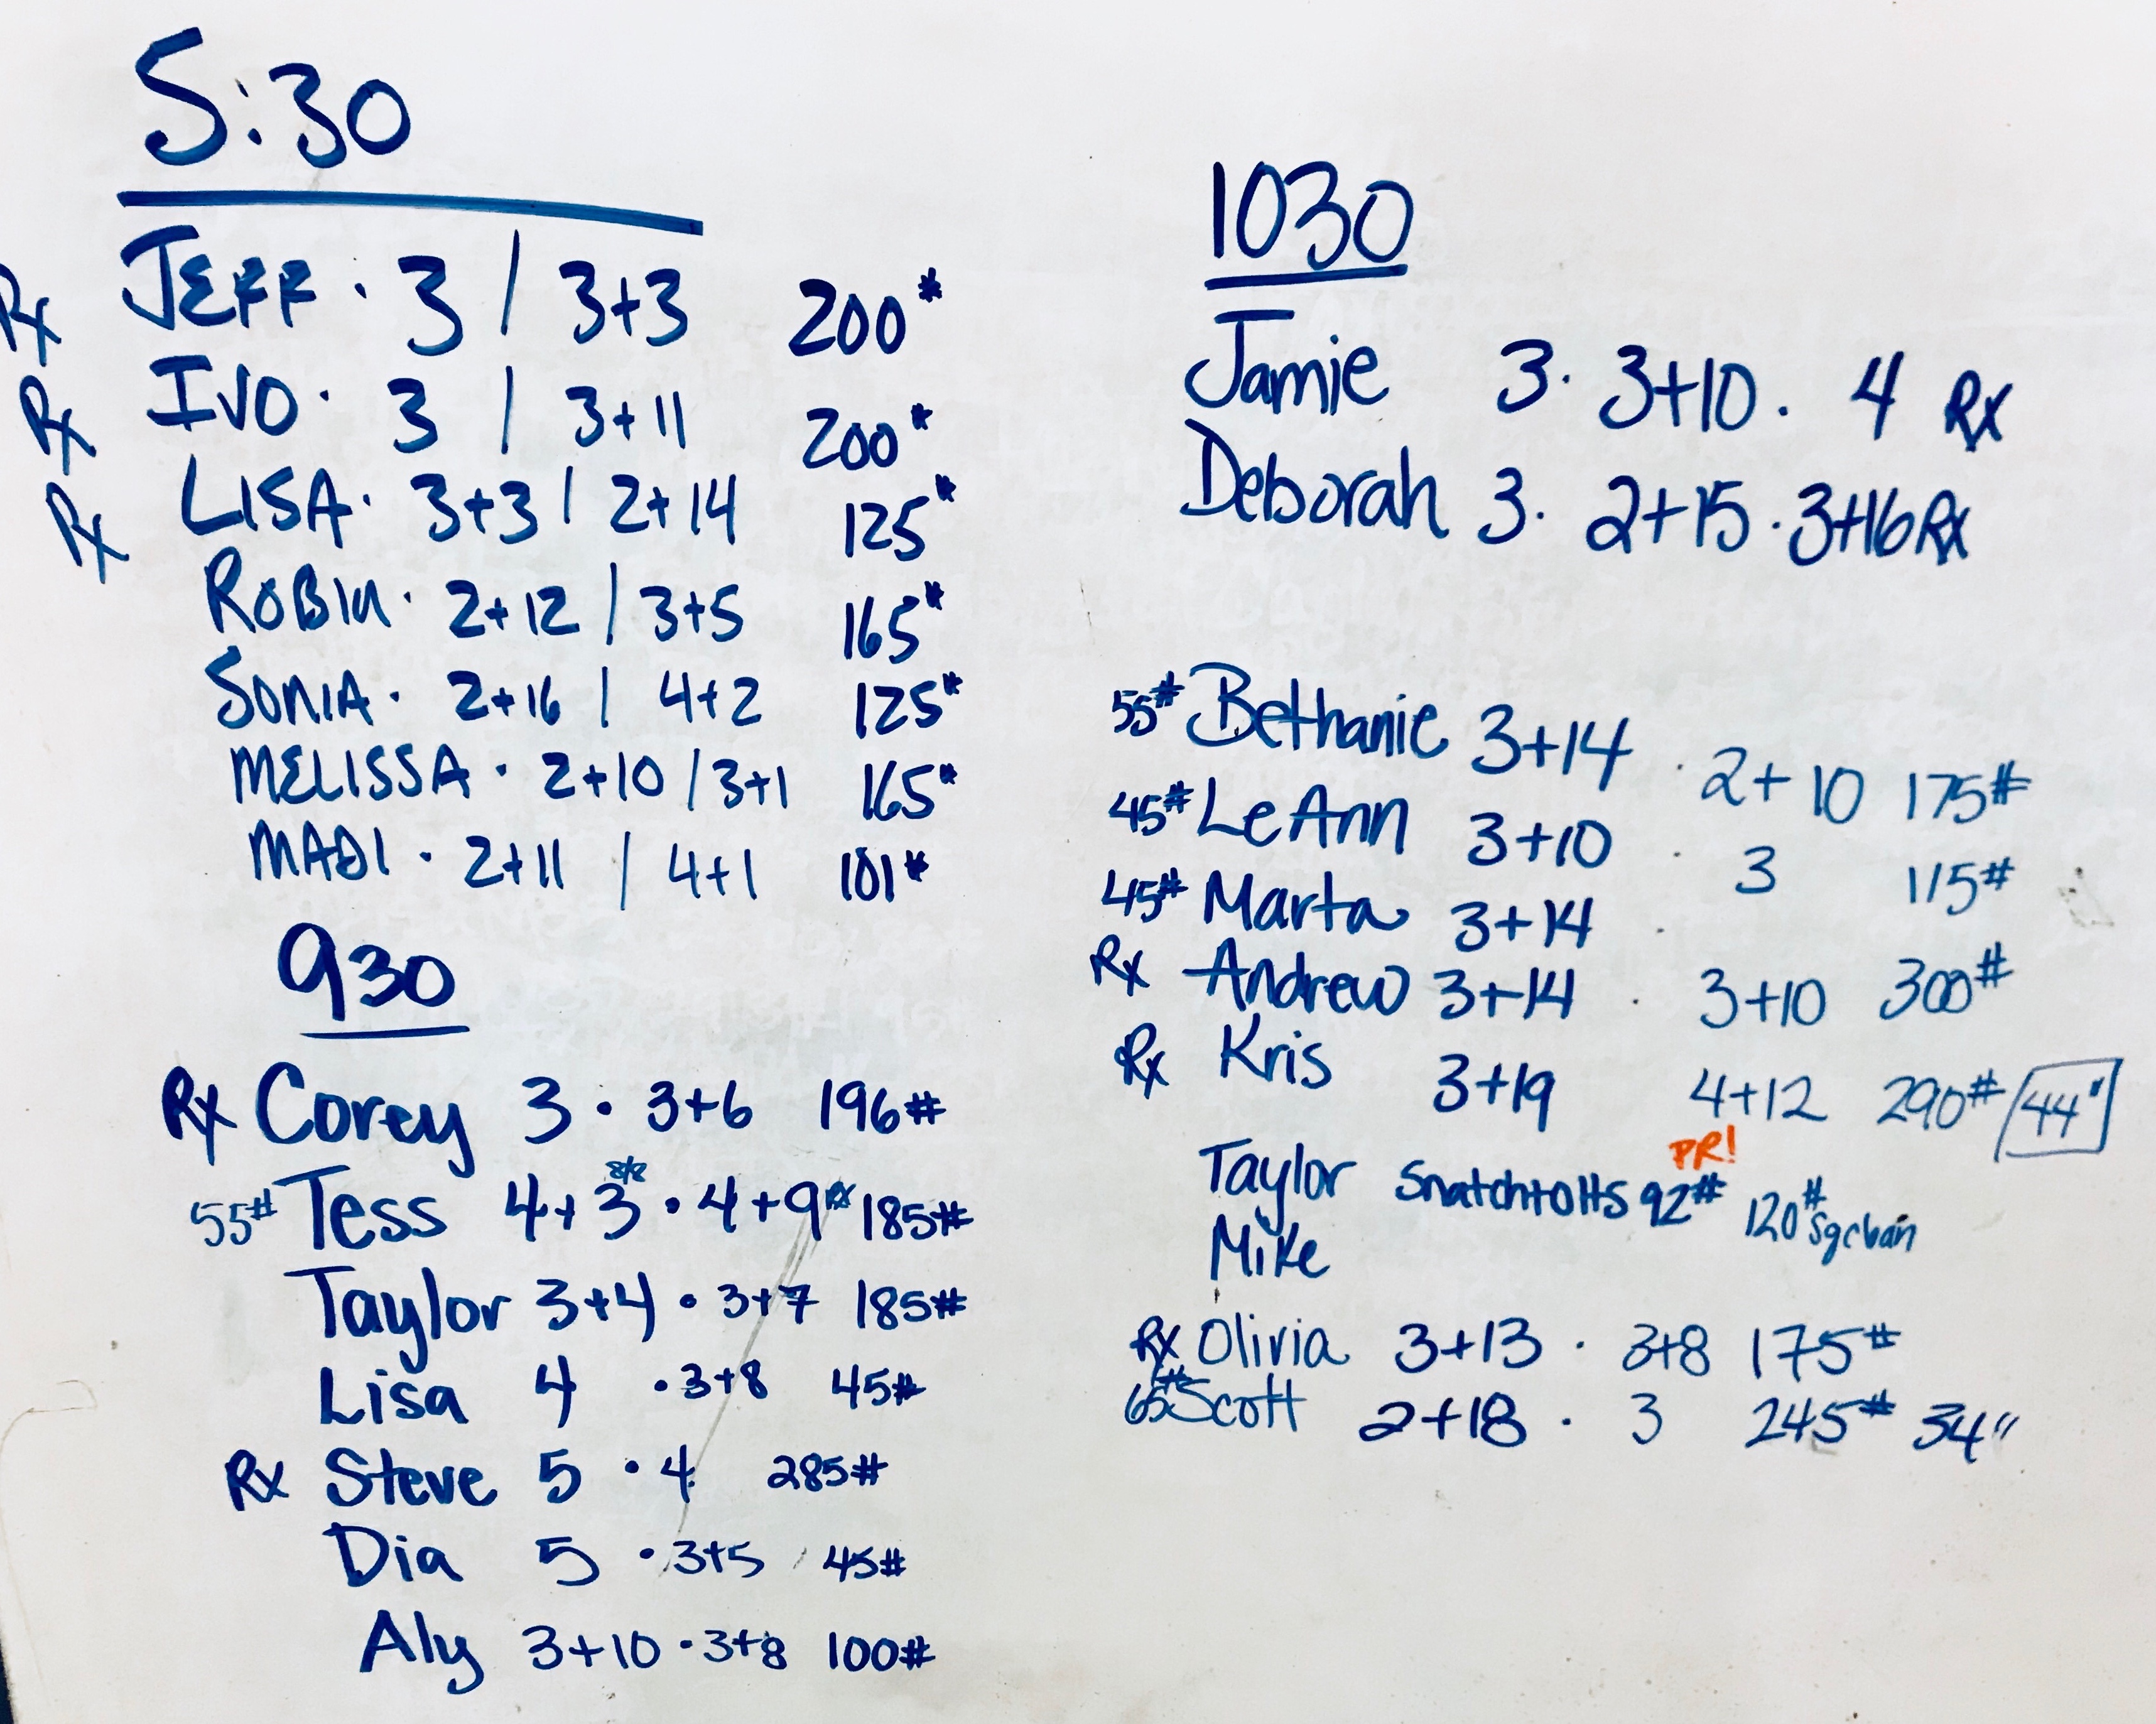 5:30
Rx JEFF · 3 / 3+3 200#
Rx IVO · 3 / 3+11 200#
Rx LISA · 3+3 / 2+14 125#
ROBIN · 2+12 / 3+5 165#
SONIA · 2+16 / 4+2 125#
MELISSA · 2+10 / 3+1 165#
MADI · 2+11 / 4+1 101#
930
Rx Corey 3 · 3+6 196#
55# Tess 4+3 · 4+9 Rx 185#
Taylor 3+4 · 3+7 185#
Lisa 4 · 3+8 45#
Rx Steve 5 · 4 285#
Dia 5 · 3+5 45#
Aly 3+10 · 3+8 100#
1030
Jamie 3 · 3+10 · 4 Rx
Deborah 3 · 2+15 · 3+16 Rx
55# Bethanie 3+14 · 2+10 175#
45# LeAnn 3+10 · 3 115#
45# Marta 3+14 ·
Rx Andrew 3+14 · 3+10 300#
Rx Kris 3+19 4+12 290# 44"
PR!
Taylor Snatch+OHS 92# 120#
Mike
Rx Olivia 3+13 · 3+8 175#
65# Scott 2+18 · 3 245# 34"